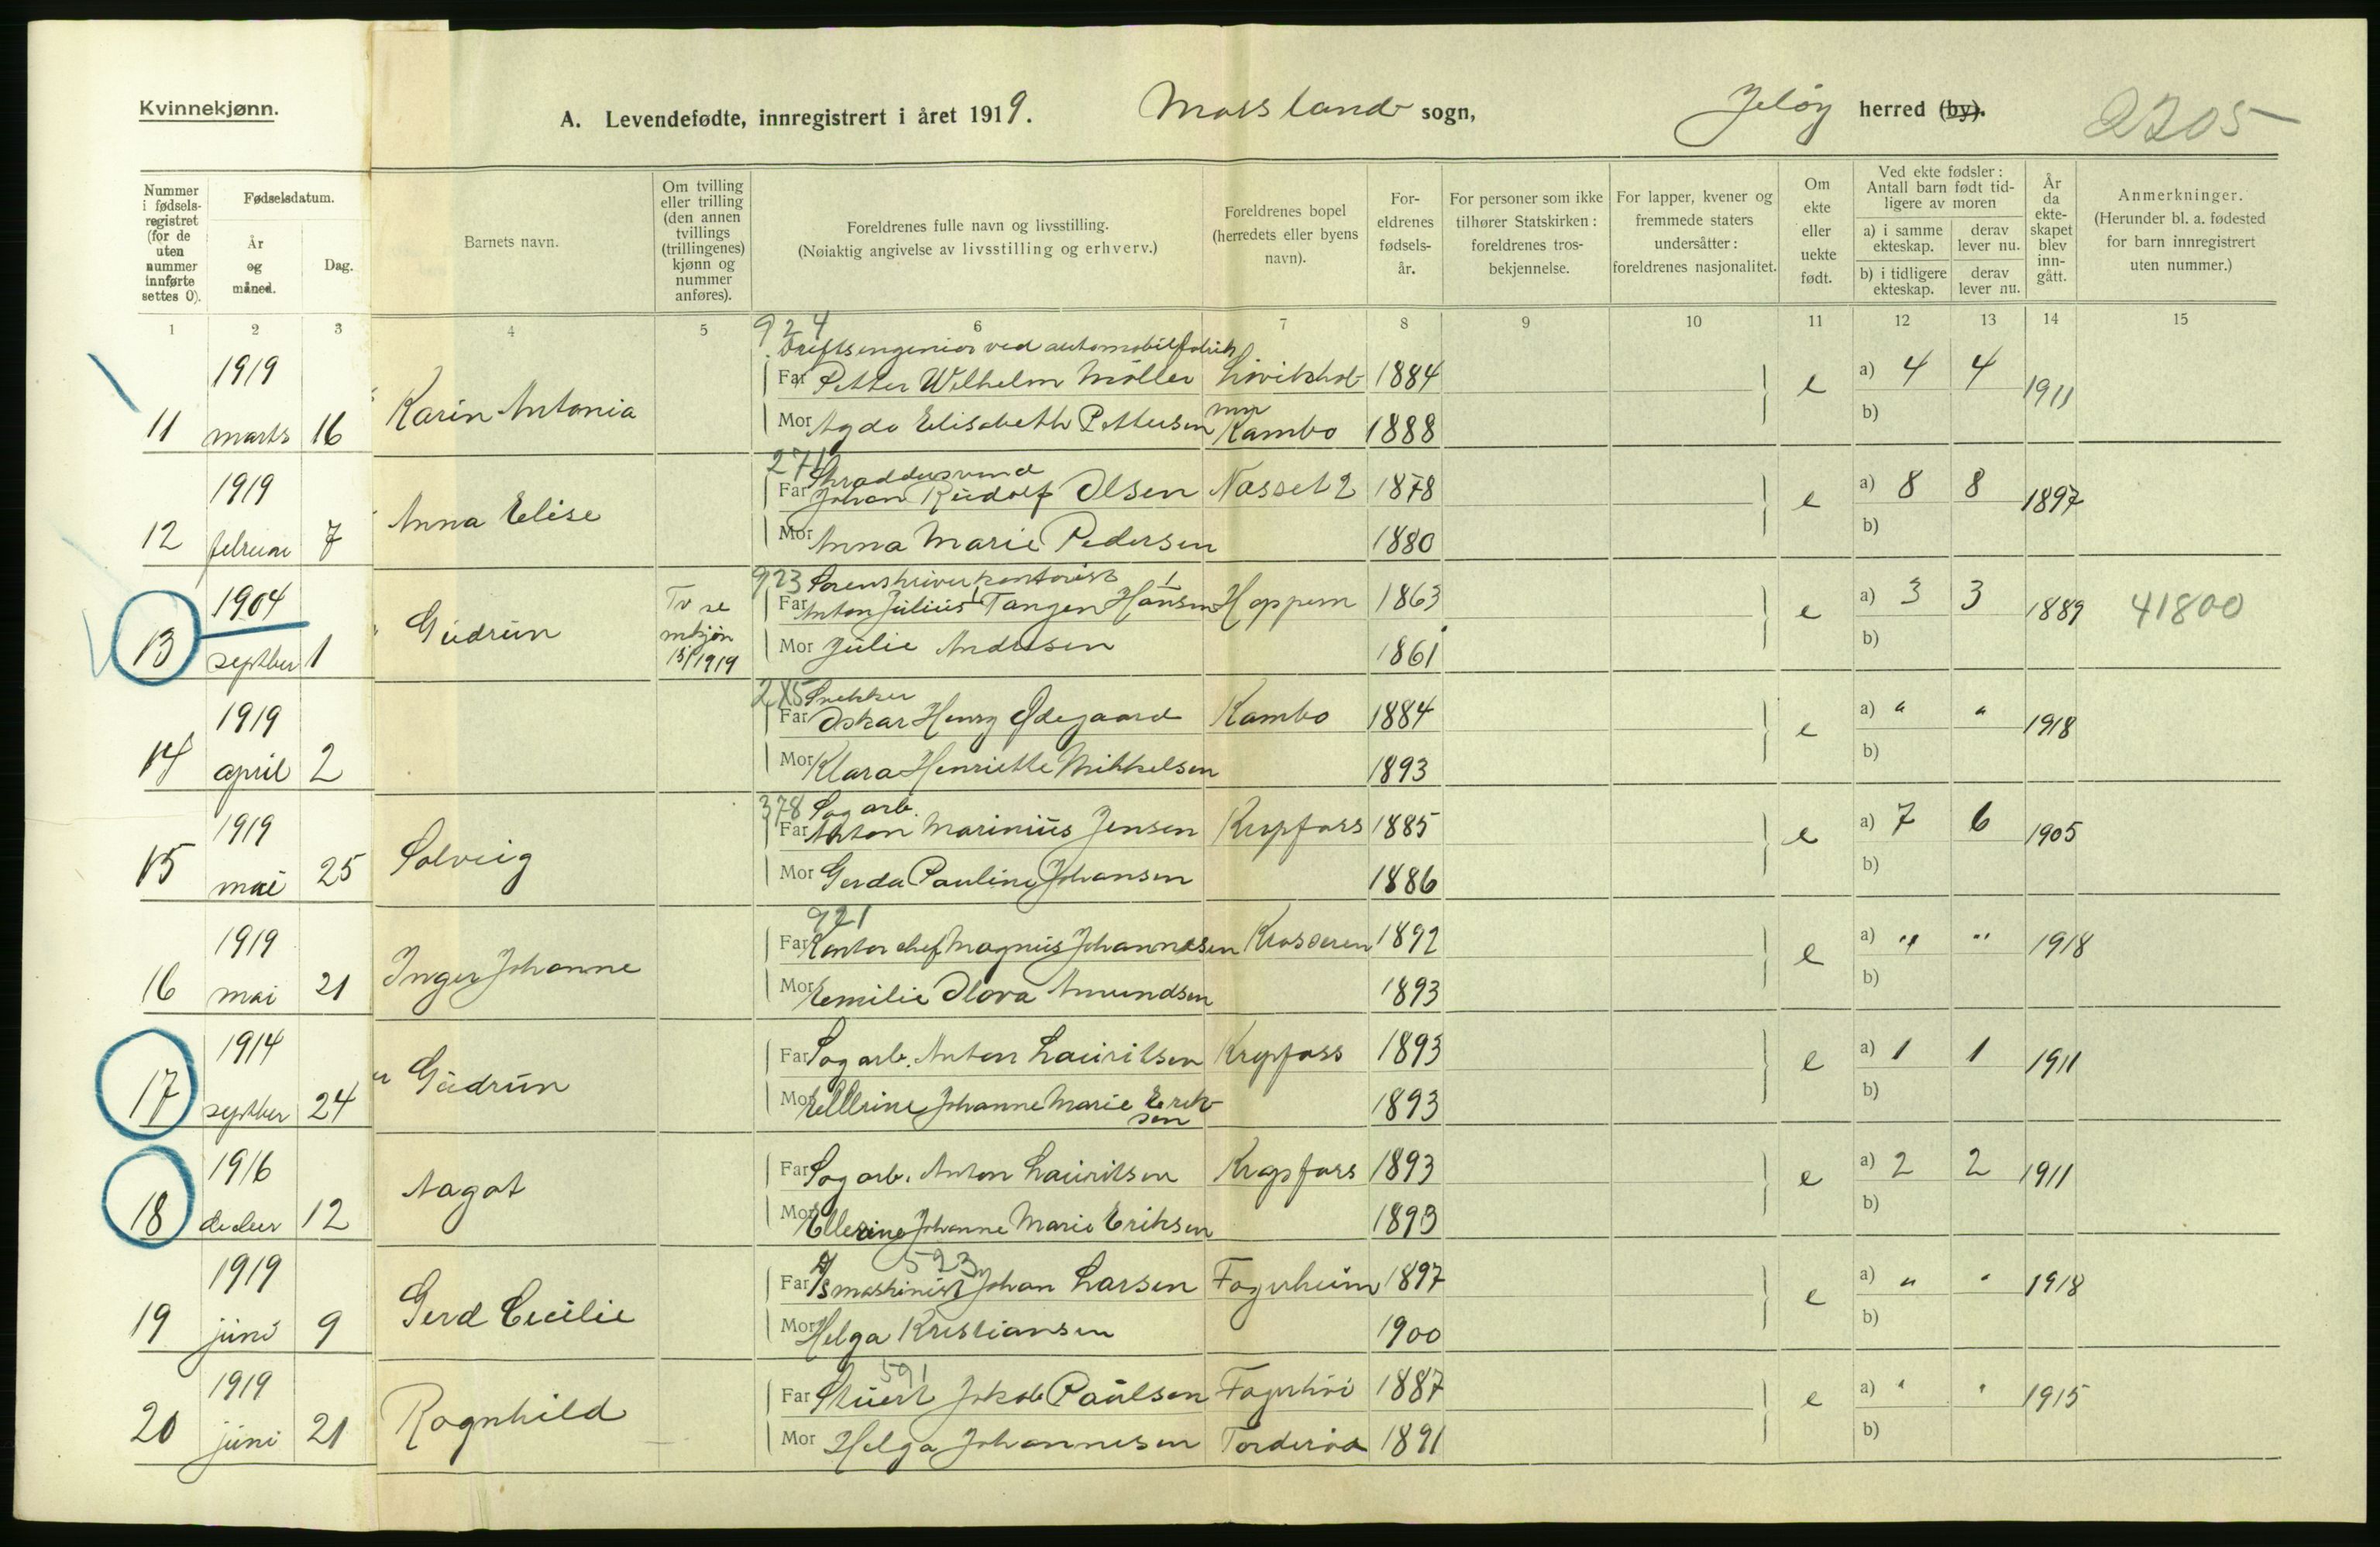 Kvinnekjønn.
A. Levendefødte, innregistrert i året 1919. Moss land sogn, Jeløy herred (by). 2205
Nummer i fødsels-registret (for de uten nummer innførte settes 0).
Fødselsdatum.
År og måned.
Dag.
Barnets navn.
Om tvilling eller trilling (den annen tvillings (trillingenes) kjønn og nummer anføres).
Foreldrenes fulle navn og livsstilling.
(Nøiaktig angivelse av livsstilling og erhverv.)
Foreldrenes bopel (herredets eller byens navn).
For-eldrenes fødsels-år.
For personer som ikke tilhører Statskirken: foreldrenes tros-bekjennelse.
For lapper, kvener og fremmede staters undersåtter: foreldrenes nasjonalitet.
Om ekte eller uekte født.
Ved ekte fødsler: Antall barn født tid-ligere av moren
a) i samme ekteskap. derav lever nu.
b) i tidligere ekteskap. derav lever nu.
År da ekte-skapet blev inn-gått.
Anmerkninger.
(Herunder bl. a. fødested for barn innregistrert uten nummer.)
1 2 3 4 5 6 7 8 9 10 11 12 13 14 15
924
Driftsingeniør ved automobilfabrik
1919 Far Petter Wilhelm Møller 1884 e a) 4 4 1911
11 marts 16 Karin Antonia Mor Agda Elisabeth Pettersen Kambo 1888 b)
271
1919 Far Johan Rudolf Olsen Nesset 2 1878 e a) 8 8 1897
12 februar 7 Anna Elise Mor Anna Marie Pedersen 1880 b)
923 Sorenskriverkontorist
1904 Far Anton Julius Tangen Hansen Hoppern 1863 e a) 3 3 1889 41800
13 septber 1 Gudrun Tv se mkjøn 15/1919 Mor Julie Andresen 1861 b)
285 Snekker
1919 Far Oskar Henry Ødegaard Kambo 1884 e a) " " 1918
14 april 2 Mor Klara Henriette Mikkelsen 1893 b)
378 Sagarb.
1919 Far Anton Marinius Jensen Krypfoss 1885 e a) 7 6 1905
15 mai 25 Solveig Mor Gerda Pauline Johansen 1886 b)
921
1919 Far Kontorchef Magnus Johannesen Krosseren 1892 e a) " " 1918
16 mai 21 Inger Johanne Mor Emilie Olova Amundsen 1893 b)
1914 Far Sagarb. Anton Lauritsen Krypfoss 1893 e a) 1 1 1911
17 septber 24 Gudrun Mor Ellerine Johanne Marie Erik-sen 1893 b)
1916 Far Sagarb. Anton Lauritsen Krypfoss 1893 e a) 2 2 1911
18 decber 12 Aagot Mor Ellerine Johanne Marie Eriksen 1893 b)
523
1919 Far D/s maskinist Johan Larsen Fagerheim 1897 e a) " " 1918
19 juni 9 Gerd Cecilie Mor Helga Kristiansen 1900 b)
591
1919 Far Stuert Jakob Paulsen Fagerhøi 1887 e a) " " 1915
20 juni 21 Ragnhild Mor Helga Johannesen Torderød 1891 b)